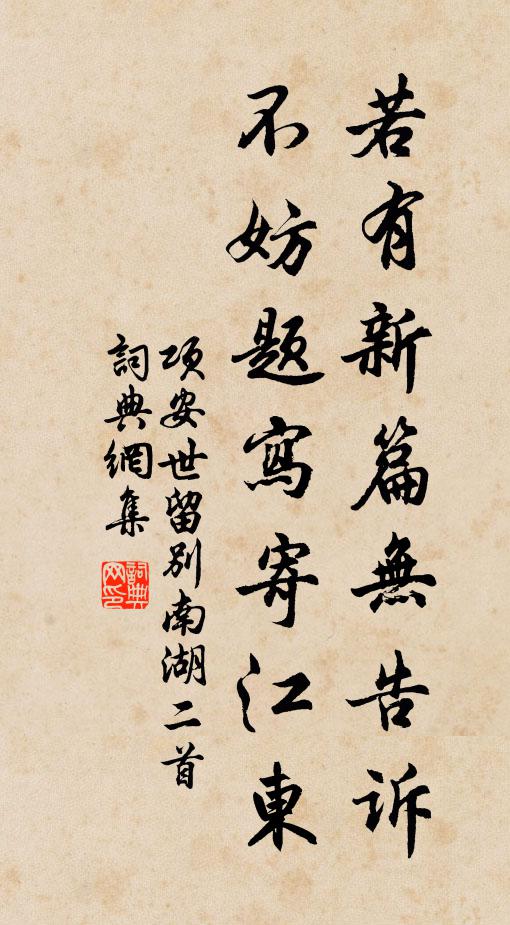 若有新篇無告訴
不妨題寫寄江東
項安世留別南湖二首
詞典網集
詞典
网印